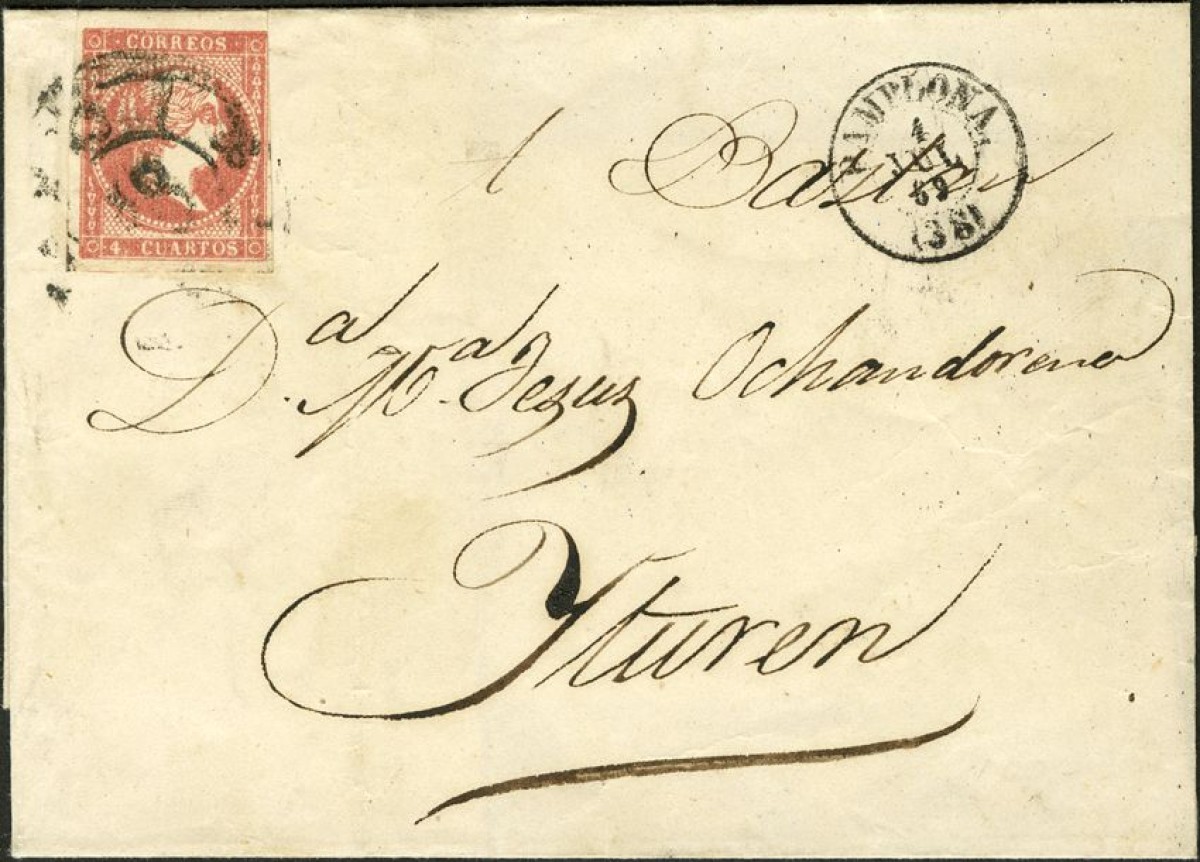 CORREOS
4. CUARTOS
PAMPLONA.
1
JUL
59
(38)
Bastan
D.ª M.ª Jezuz Ochandorena
Yturen